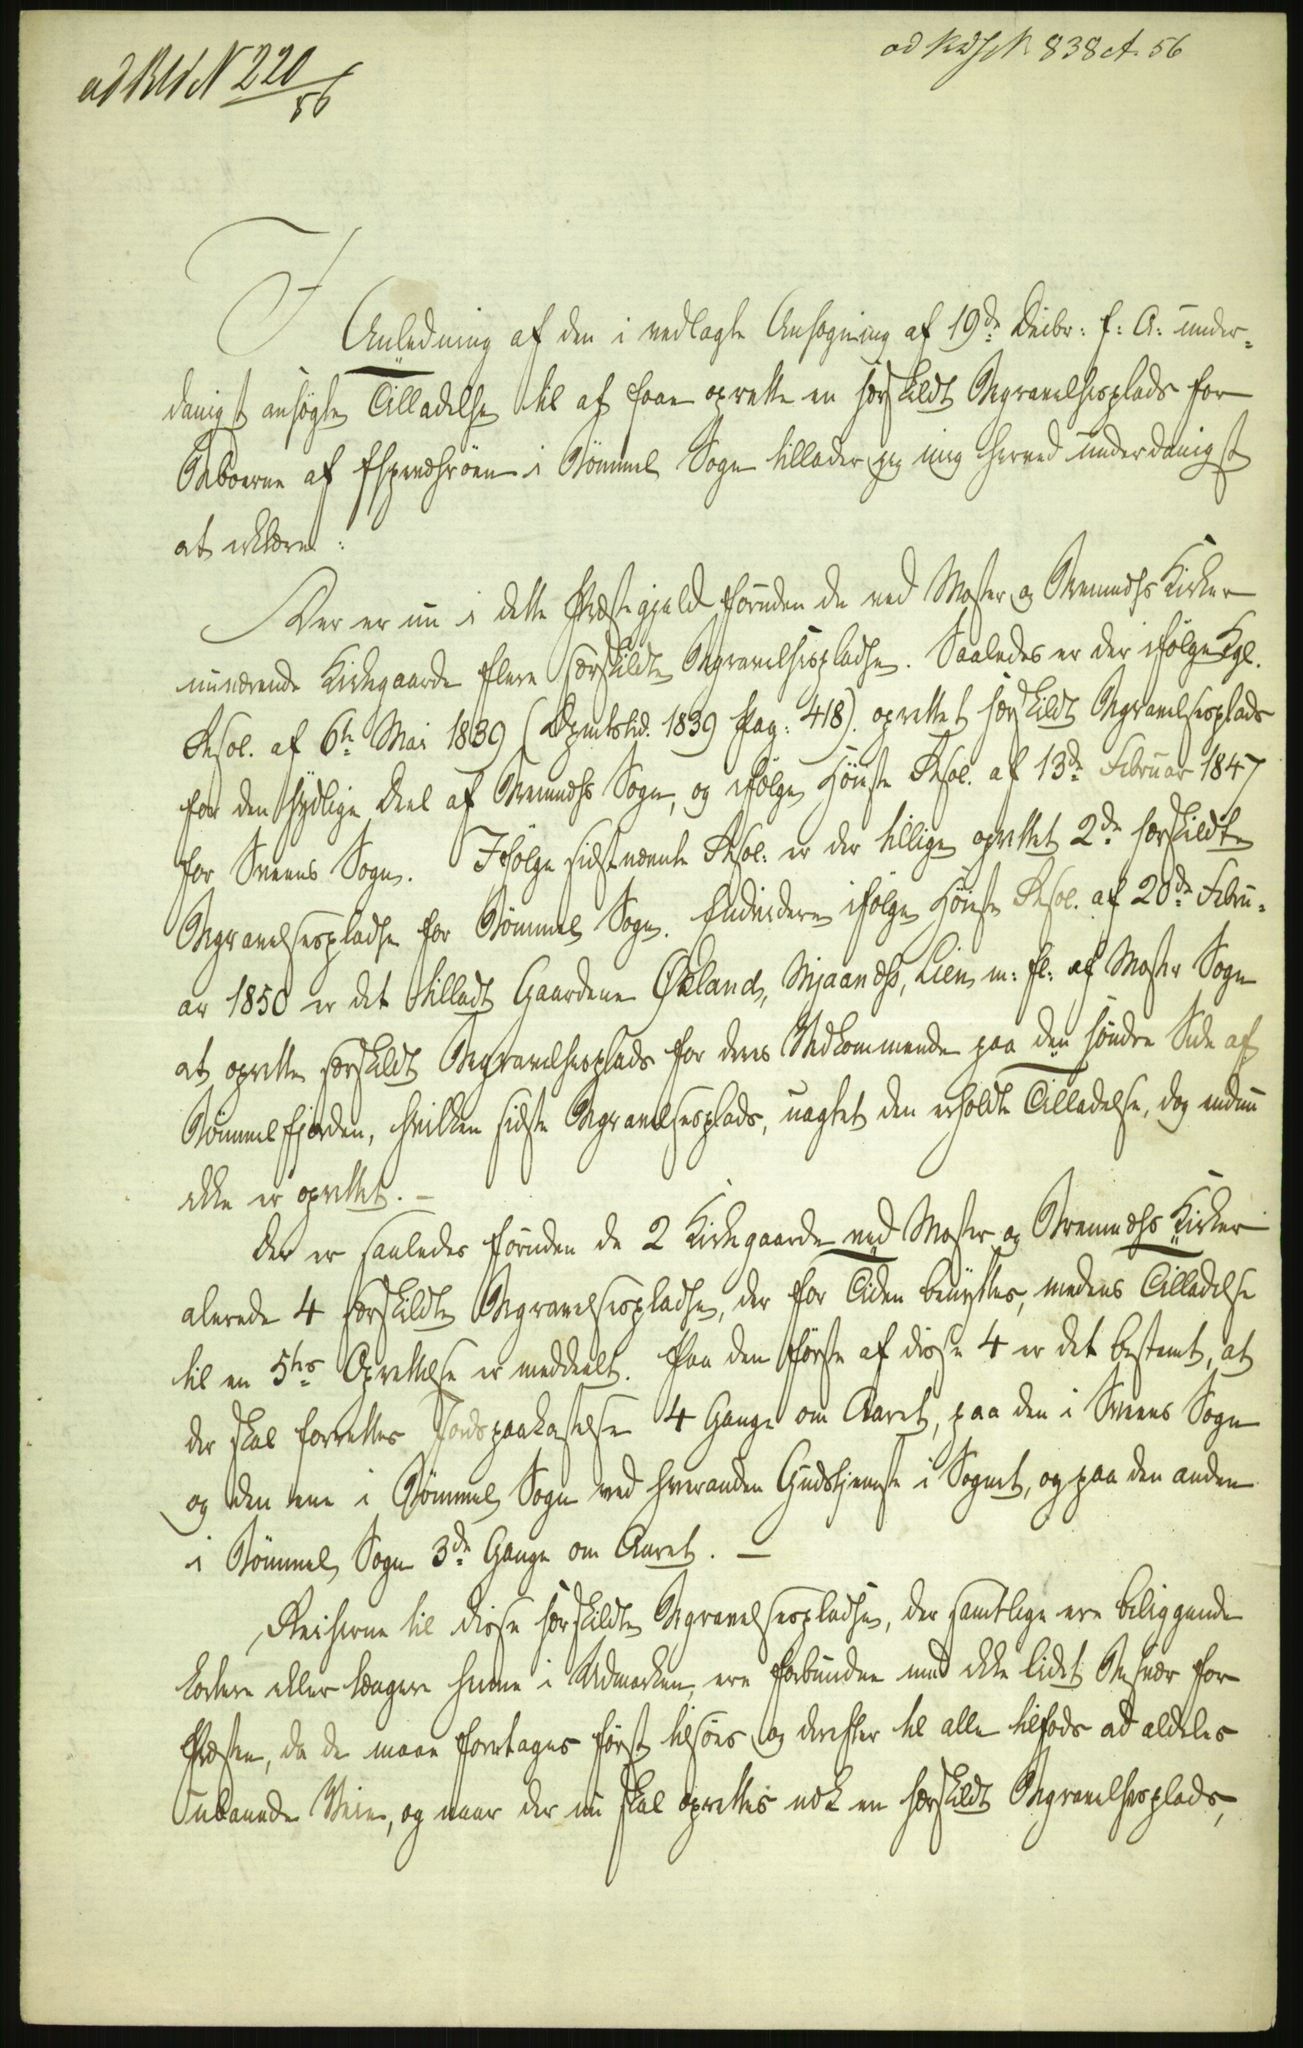 ad Kds N 838 A. 56
ad B N 220/56
I Anledning af den i vedlagte Ansøgning af 19de Decbr: f: A: under-
danigst ansøgte Tilladelse til at faae oprette en særskildt Begravelsesplads for
Beboerne af Espeværøen i Bømmel Sogn tillader jeg mig herved underdanigst
at erklære:
Der er nu i dette Præstegjeld foruden de ved Moster og Bremnæs Kirker
nuværende Kirkegaarde flere særskildte Begravelsespladse. Saaledes er der ifølge Kgl.
Resol. af 6te Mai 1839 (Dpmtstid. 1839 Pag: 418). oprettet særskildt Begravelsesplads
for den sydlige Deel af Bremnæs Sogn, og ifølge Høieste Resol. af 13de Februar 1847
for Sveens Sogn. Ifølge sidstnævnte Resol: er der tillige oprettet 2de særskildte
Begravelsespladse for Bømmel Sogn. Endvidere ifølge Høieste Resol. af 20de Febru-
ar 1850 er det tilladt Gaardene Økland, Mjaanæs, Lien m: fl: af Moster Sogn
at oprette særskildt Begravelsesplads for deres Vedkommende paa den søndre Side af
Bømmelfjorden, hvilken sidste Begravelsesplads, uagtet den erholdte Tilladelse, dog endnu
ikke er oprettet. —
Der er saaledes foruden de 2 Kirkegaarde ved Moster og Bremnæs Kirker
alerede 4 særskildte Begravelsespladse, der for Tiden benyttes, medens Tilladelse
til en 5tes Oprettelse er meddeelt. Paa den første af disse 4 er det bestemt, at
der skal forrettes Jordspaakastelse 4 Gange om Aaret, paa den i Sveens Sogn
og den ene i Bømmel Sogn ved hveranden Gudstjeneste i Sognet, og paa den anden
i Bømmel Sogn 3de Gange om Aaret. —
Reiserne til disse særskildte Begravelsespladse, der samtlige ere beliggende
kortere eller længere henne i Udmarken, ere forbundne med ikke lidet Besvær for
Præsten, da de maae foretages først tilsøes og derefter til alle tilfods ad aldeles
ubanede Veie, og naar der nu skal oprettes nok en særskildt Begravelsesplads,